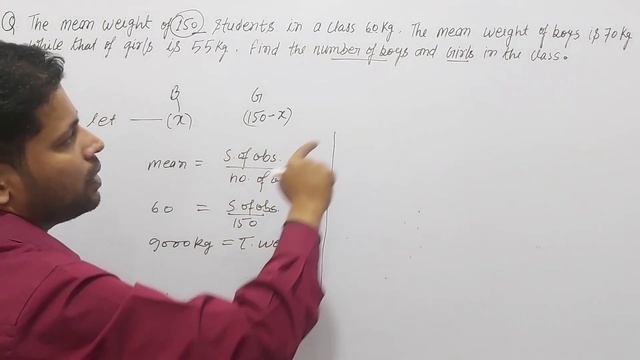 Q The mean weight of 150 students in a class 60kg. The mean weight of boys is 70kg
while that of girls is 55kg. Find the number of boys and Girls in the class.
B G
let — (x) (150-x)
mean = S. of obs. / no. of
60 = S. of obs. / 150
9000kg = T.